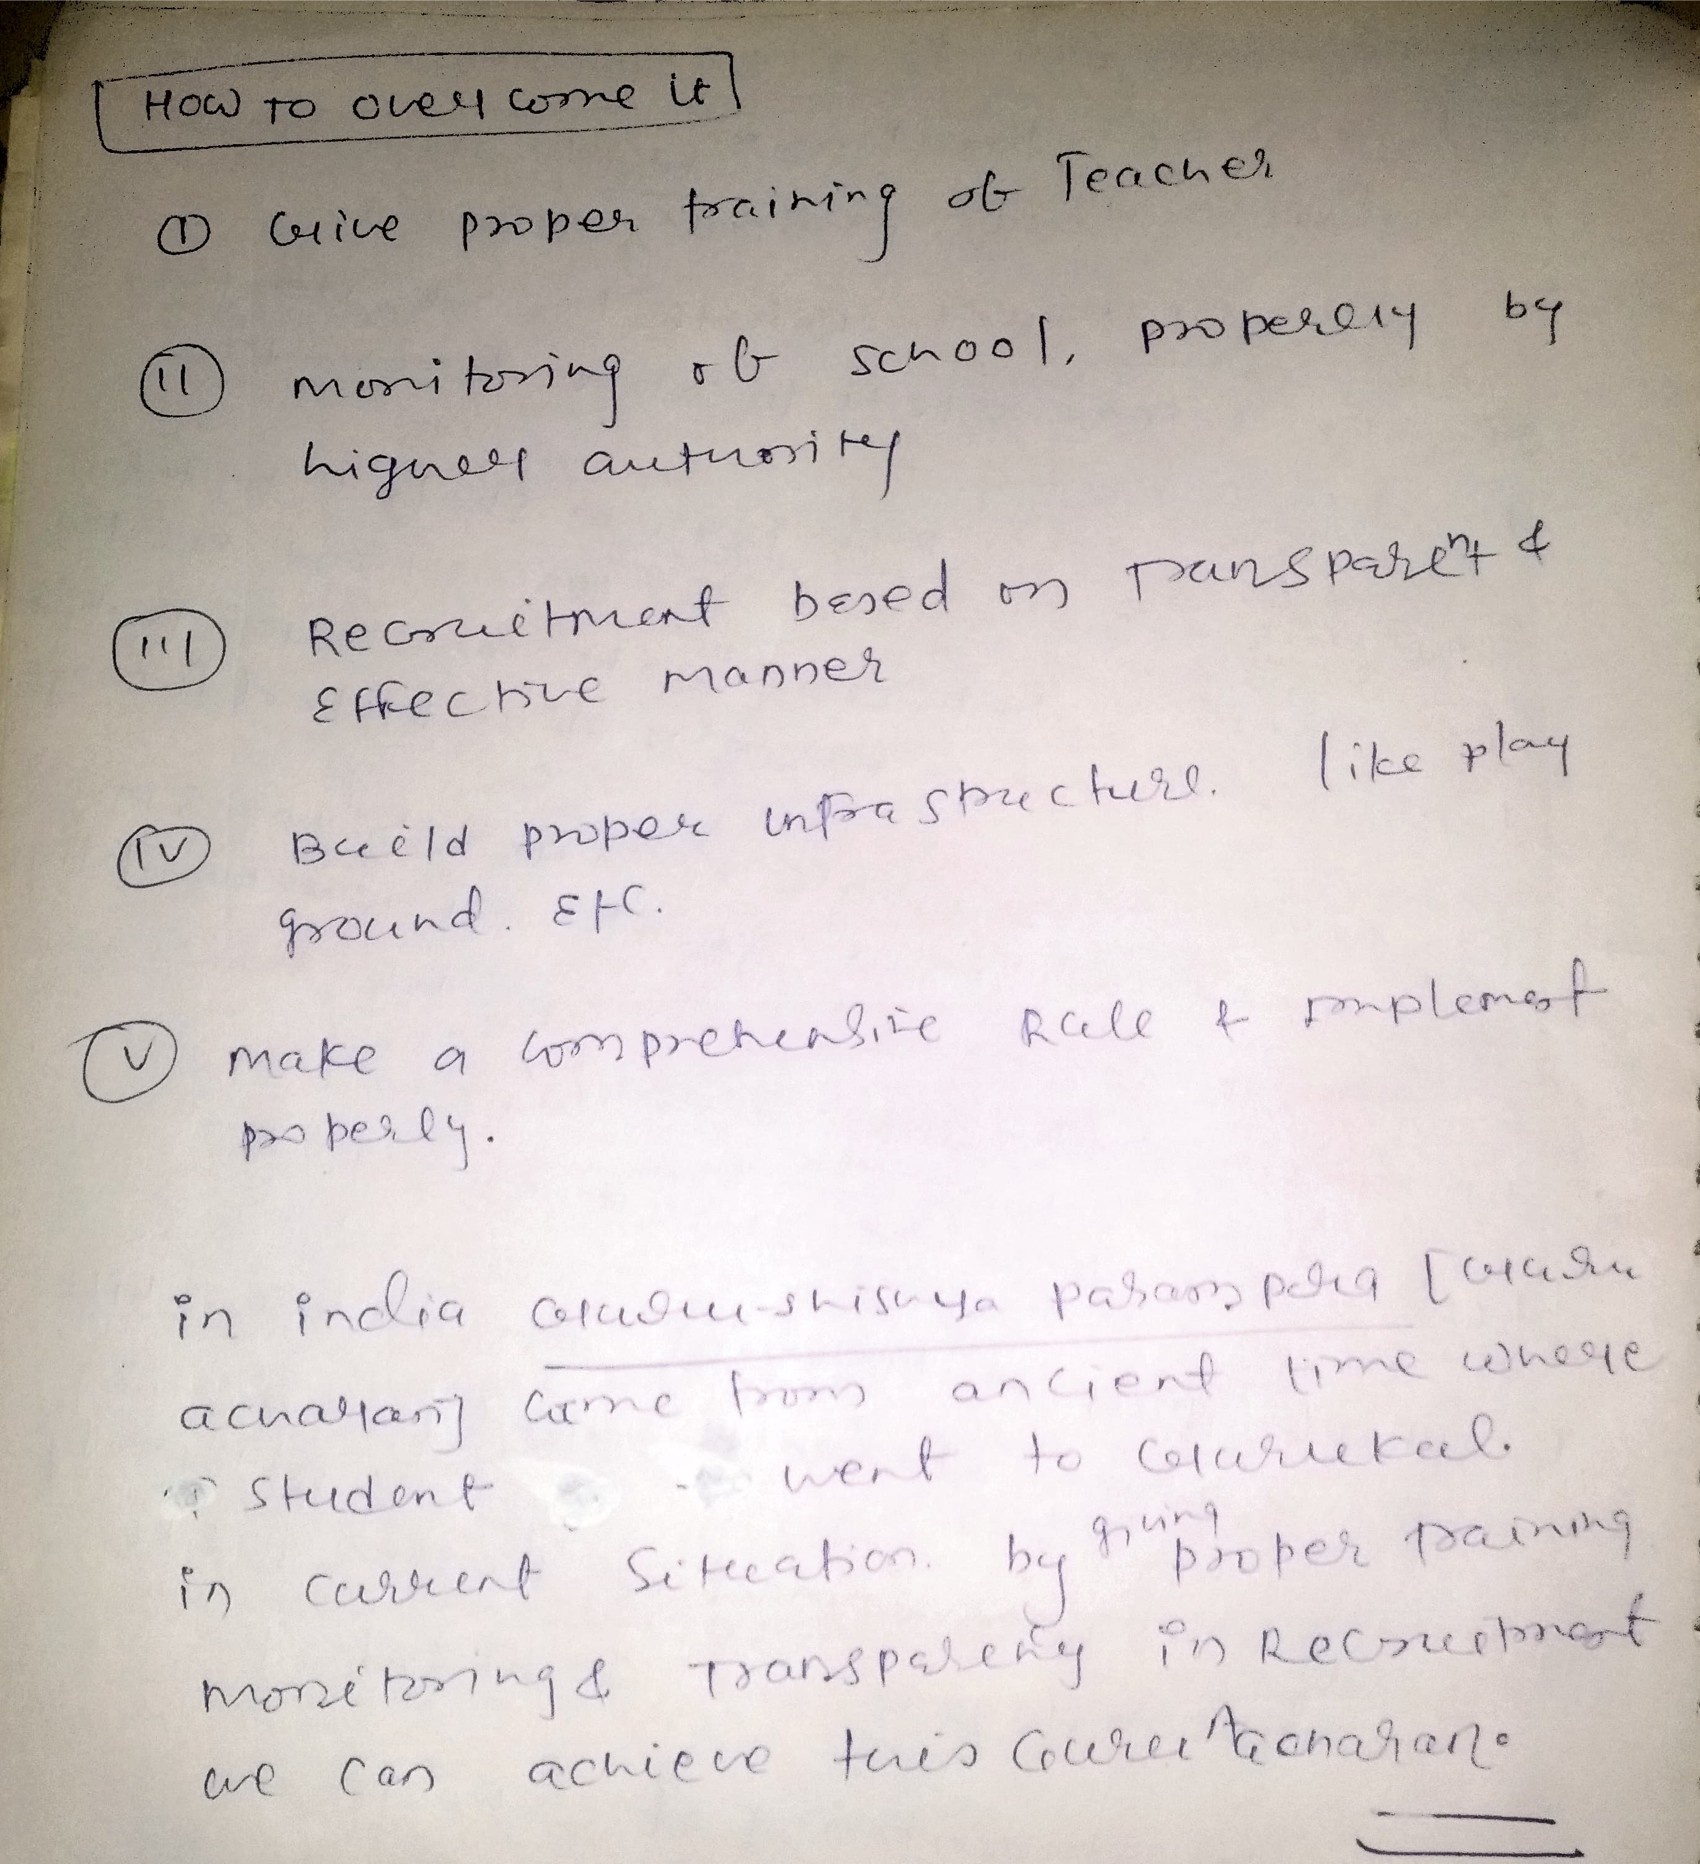 How to overcome it
(I) Give proper training of Teacher
(II) monitoring of school, properly by
higher authority
(III) Recruitment based on Transparent &
Effective manner
(IV) Build proper infrastructure. like play
ground. Etc.
(V) make a comprehensive Rule & implement
properly.
in india Guru-shishya parampara [Guru
acharan] came from ancient time where
student went to Gurukul.
in current situation. by giving proper training
monitoring & Transparency in Recruitment
we can achieve this Guru Aacharan.